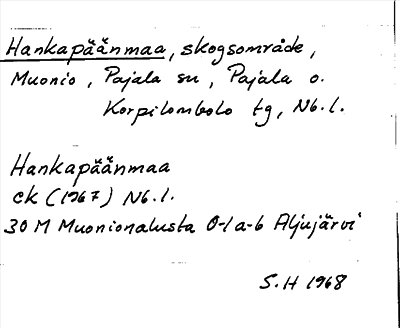 Hankapäänmaa, skogsområde,
Muonio, Pajala sn, Pajala o.
Korpilombolo tg, Nb. l.
Hankapäänmaa
ek (1967) Nb. l.
30 M Muonionalusta 0-1 a-b Aljujärvi
S.H 1968